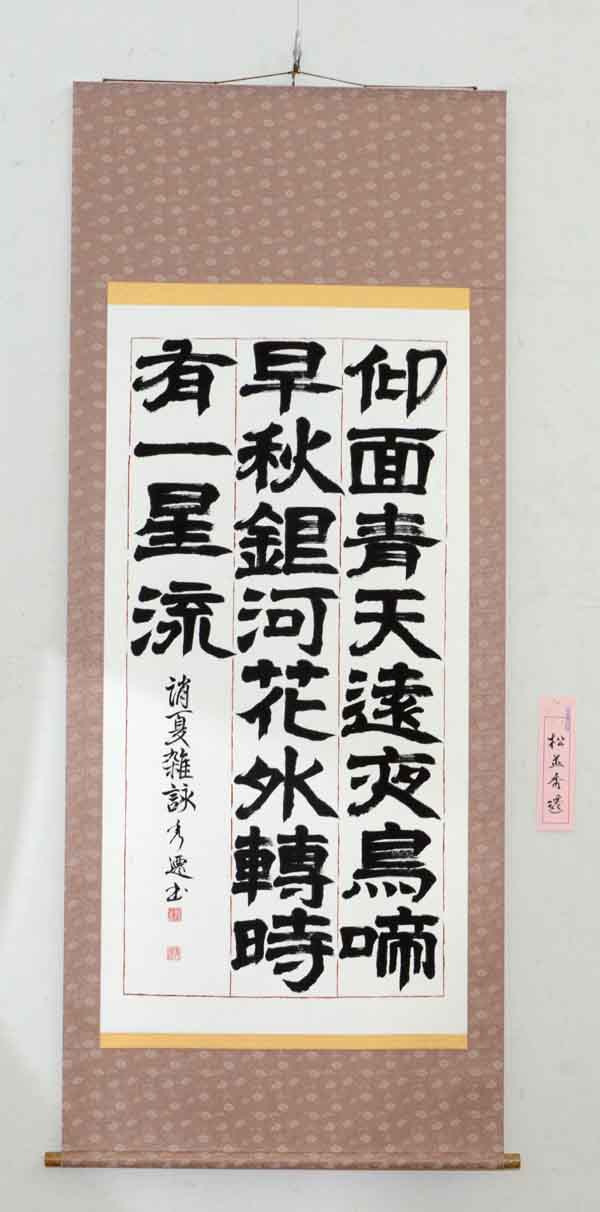 仰面青天遠夜鳥啼
早秋銀河花外轉時
有一星流
消夏雑詠 秀遷書
松並秀遷